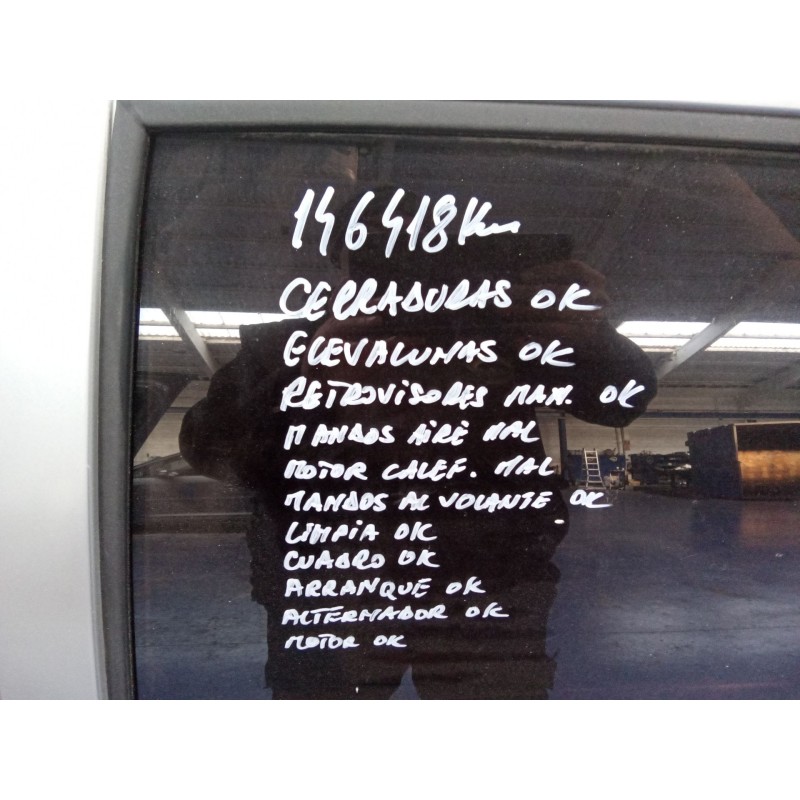 146418 Km
CERRADURAS OK
ELEVALUNAS OK
RETROVISORES MAN. OK
MANDOS AIRE MAL
MOTOR CALEF. MAL
MANDOS AL VOLANTE OK
LIMPIA OK
CUADRO OK
ARRANQUE OK
ALTERNADOR OK
MOTOR OK